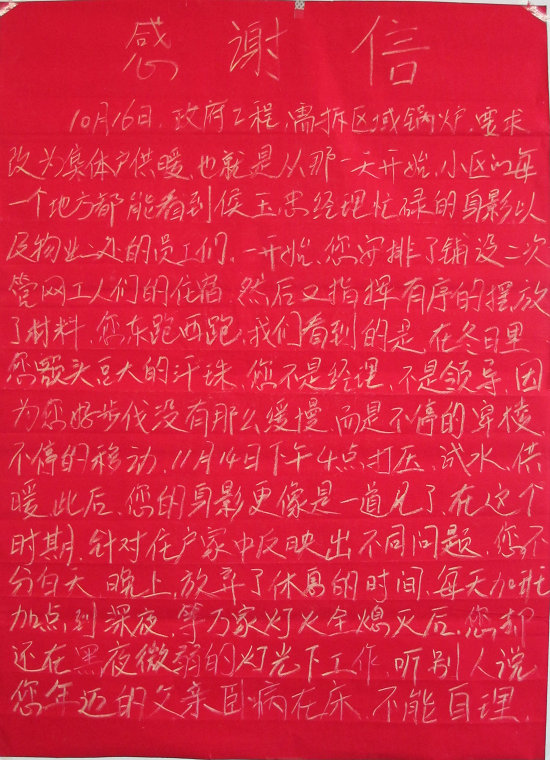 感谢信
10月16日,政府工程,需拆区域锅炉,要求
改为集体户供暖,也就是从那一天开始,小区的每
一个地方都能看到侯玉忠经理忙碌的身影以
及物业二处的员工们,一开始,您安排了铺设二次
管网工人们的住宿,然后又指挥有序的摆放
了材料,您东跑西跑,我们看到的是,在冬日里
您额头豆大的汗珠,您不是经理,不是领导,因
为您的步伐没有那么缓慢,而是不停的穿梭
不停的移动,11月14日下午4点打压,试水,供
暖,此后,您的身影更像是一道 了,在这个
时期,针对住户家中反映出不同问题,您不
分白天,晚上,放弃了休息的时间,每天加班
加点,到深夜,等万家灯火全熄灭后,您却
还在黑夜微弱的灯光下工作,听别人说
您年迈的父亲卧病在床,不能自理,